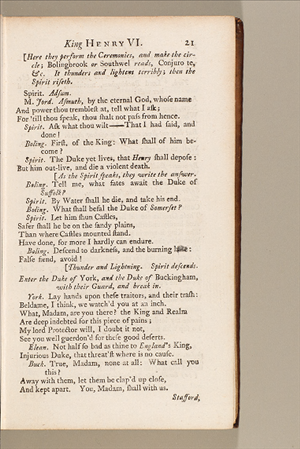 King HENRY VI. 21
[Here they perform the Ceremonies, and make the cir-
cle; Bolingbrook or Southwel reads, Conjuro te,
&c. It thunders and lightens terribly; then the
Spirit riseth.
Spirit. Adsum.
M. Jord. Asmuth, by the eternal God, whose name
And power thou tremblest at, tell what I ask;
For 'till thou speak, thou shalt not pass from hence.
Spirit. Ask what thou wilt——That I had said, and
done!
Boling. First, of the King: What shall of him be-
come?
Spirit. The Duke yet lives, that Henry shall depose:
But him out-live, and die a violent death.
[As the Spirit speaks, they write the answer.
Boling. Tell me, what fates await the Duke of
Suffolk?
Spirit. By Water shall he die, and take his end.
Boling. What shall befal the Duke of Somerset?
Spirit. Let him shun Castles,
Safer shall he be on the sandy plains,
Than where Castles mounted stand.
Have done, for more I hardly can endure.
Boling. Descend to darkness, and the burning
False fiend, avoid!
[Thunder and Lightning. Spirit descends.
Enter the Duke of York, and the Duke of Buckingham,
with their Guard, and break in.
York. Lay hands upon these traitors, and their trash:
Beldame, I think, we watch'd you at an inch.
What, Madam, are you there? the King and Realm
Are deep indebted for this piece of pains;
My lord Protector will, I doubt it not,
See you well guerdon'd for these good deserts.
Elean. Not half so bad as thine to England's King,
Injurious Duke, that threat'st where is no cause.
Buck. True, Madam, none at all: What call you
this?
Away with them, let them be clap'd up close,
And kept apart. You, Madam, shall with us.
Stafford,